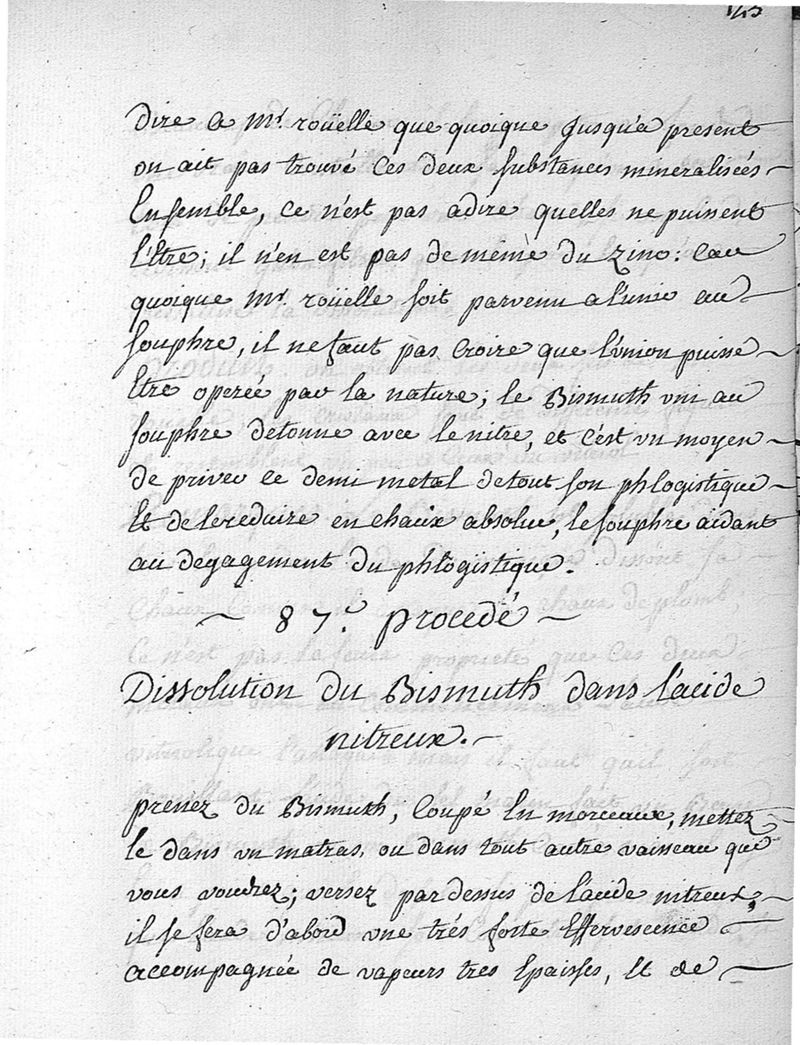 dire a Mr. roüelle que quoique jusqu'a present
on ait pas trouvé ces deux substances mineralisées
Ensemble, ce n'est pas adire quelles ne puissent
l'Etre; il n'en est pas de même du zinc: car
quoique Mr. roüelle soit parvenu a l'unir au
souphre, il ne faut pas Croire que l'union puisse
Etre operée par la nature; le Bismuth uni au
souphre detonne avec le nitre, et c'est un moyen
de priver ce demi metal de tout son phlogistique
Et de le reduire en chaux absolue, le souphre aidant
au degagement du phlogistique.
87.e procedé
Dissolution du Bismuth dans l'acide
nitreux.
prenez du Bismuth, Coupé En morceaux, mettez
le dans un matras, ou dans tout autre vaisseau que
vous voudrez; versez par dessus de l'acide nitreux,
il se fera d'abord une trés forte Effervescence
accompagnée de vapeurs tres Epaisses, Et de